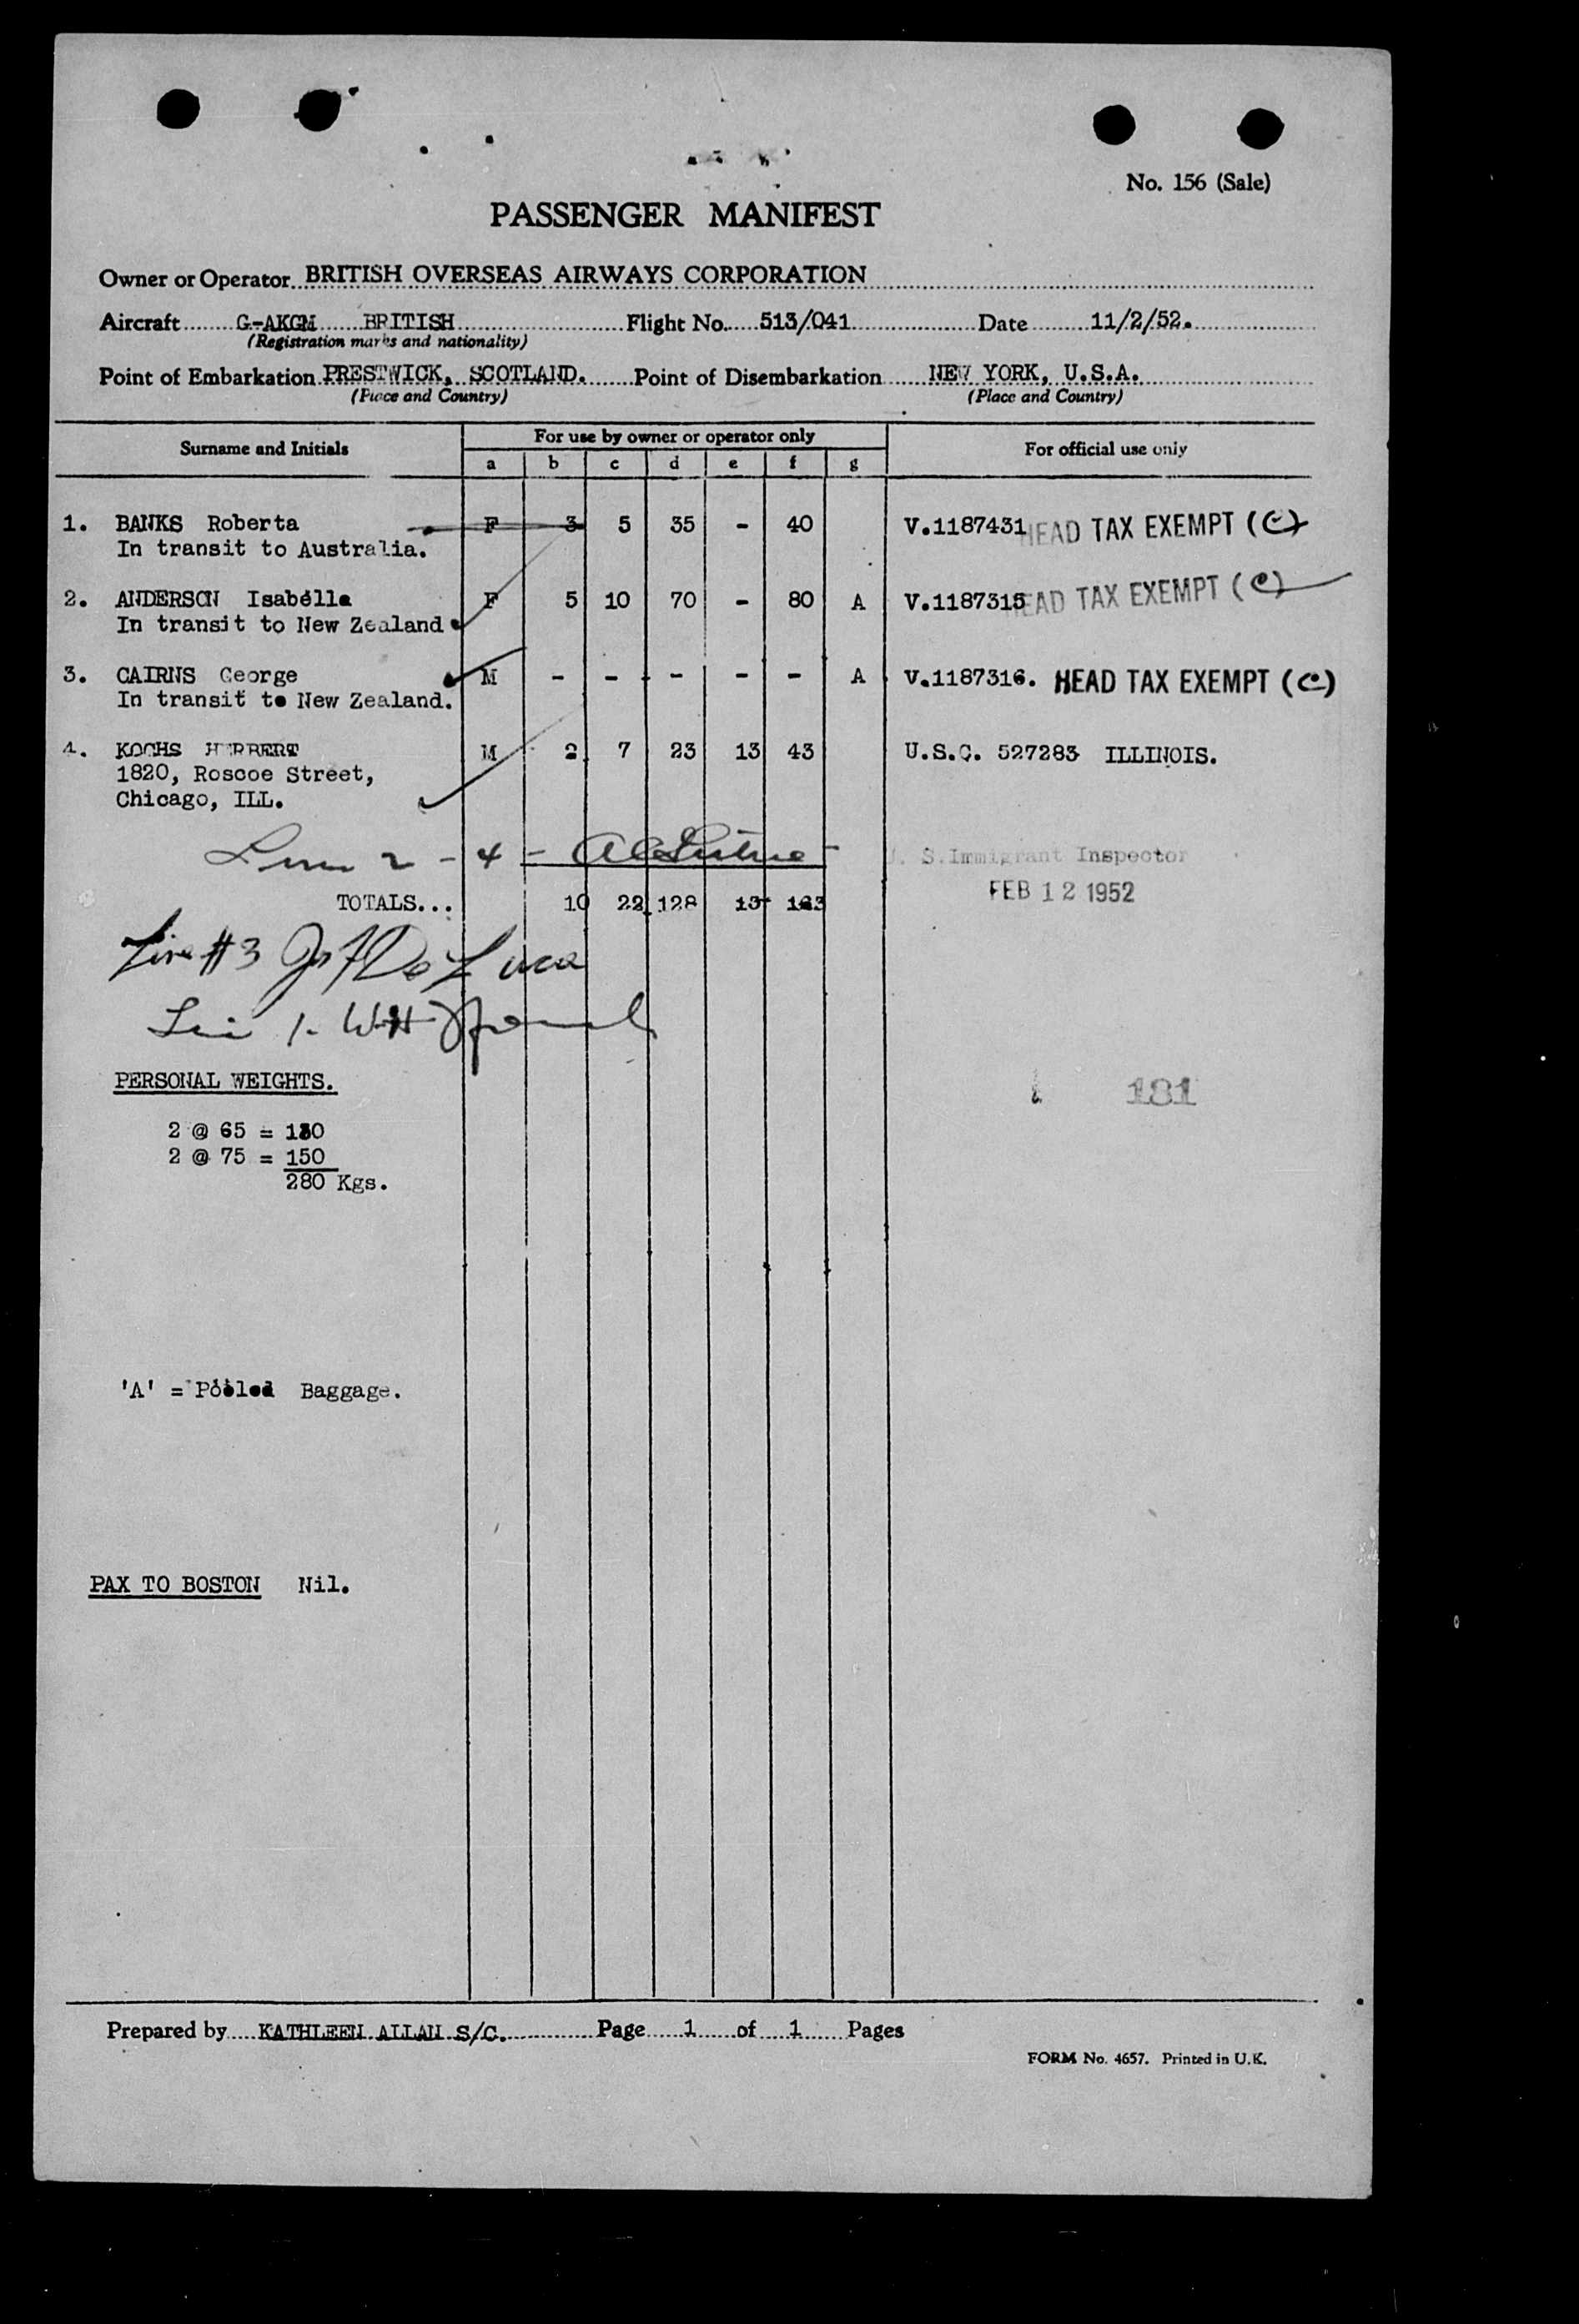 No. 156 (Sale)
PASSENGER MANIFEST
Owner or Operator BRITISH OVERSEAS AIRWAYS CORPORATION
Aircraft G-AKGM BRITISH Flight No. 513/041 Date 11/2/52.
(Registration marks and nationality)
Point of Embarkation PRESTWICK, SCOTLAND. Point of Disembarkation NEW YORK, U.S.A.
(Place and Country) (Place and Country)
Surname and Initials For use by owner or operator only For official use only
a b c d e f g
1. BANKS Roberta F 3 5 35 - 40 V.1187431 HEAD TAX EXEMPT (C)
In transit to Australia.
2. ANDERSON Isabella F 5 10 70 - 80 A V.1187315 HEAD TAX EXEMPT (C)
In transit to New Zealand.
3. CAIRNS George M - - - - - A V.1187316. HEAD TAX EXEMPT (C)
In transit to New Zealand.
4. KOCHS HERBERT M 2 7 23 13 43 U.S.C. 527283 ILLINOIS.
1820, Roscoe Street,
Chicago, ILL.
2 - 4 -
U. S. Immigrant Inspector
FEB 12 1952
TOTALS... 10 22 128 13 163
Line #3 De Luca
1. WH
PERSONAL WEIGHTS.
181
2 @ 65 = 130
2 @ 75 = 150
280 Kgs.
'A' = Pooled Baggage.
PAX TO BOSTON Nil.
Prepared by KATHLEEN ALLAN S/C. Page 1 of 1 Pages
FORM No. 4657. Printed in U.K.